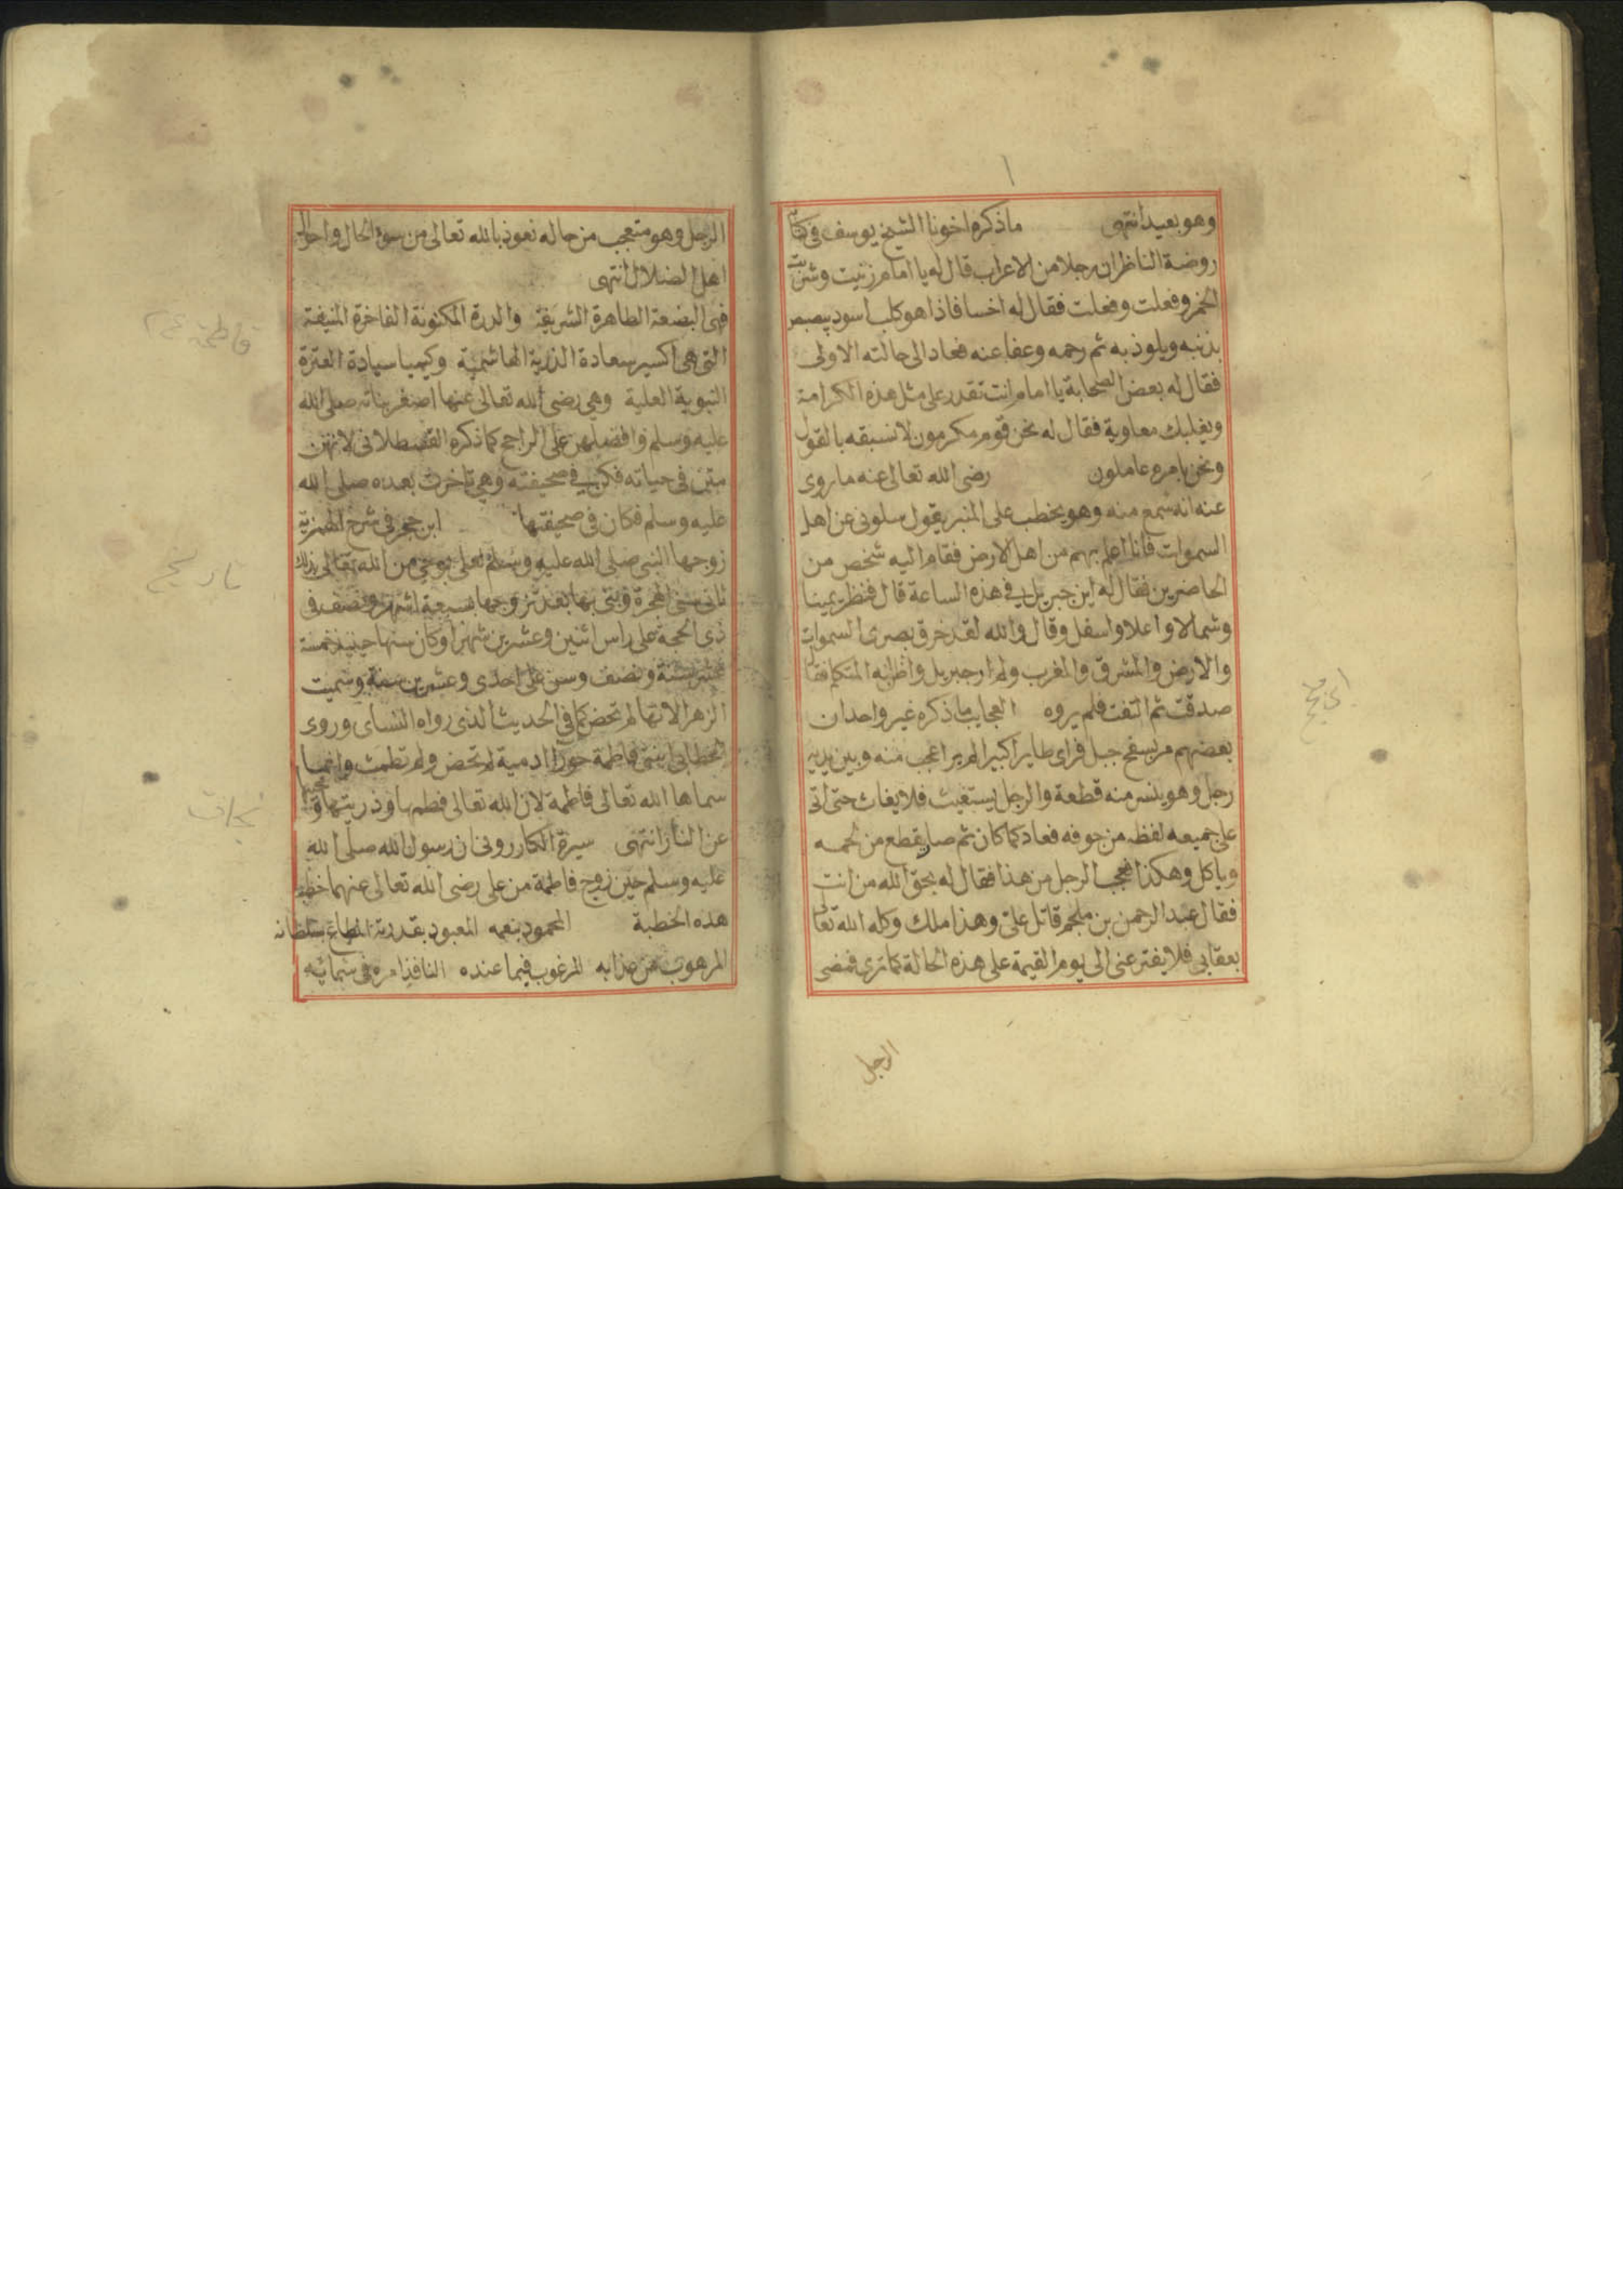 وهو بعيد انتهى ما ذكره اخونا الشيخ يوسف في كتاب
روضة الناظران رجلا من الاعراب قال له يا امام زنيت وشربت
الخمر وفعلت وفعلت فقال له اخسا فاذا هو كلب اسود يبصبص
بذنبه ويلوذ به ثم رحمه وعفا عنه فعاد الى حالته الاولى
فقال له بعض الصحابة يا امام انت تقدر على مثل هذه الكرامة
ويغلبك معاوية فقال له نحن قوم مكرمون لا نسبقه بالقول
ونحن بامره عاملون رضى الله تعالى عنه ما روى
عنه انه سمع منه وهو يخطب على المنبر يقول سلونى عن اهل
السموات فانا اعلم بهم من اهل الارض فقام اليه شخص من
الحاضرين فقال له اين جبريل في هذه الساعة قال فنظر يمينا
وشمالا واعلا واسفل وقال والله لقد خرق بصرى السموات
والارض والمشرق والمغرب ولم ار جبريل واظنه المتكلم فقال
صدقت ثم التفت فلم يروه العجايب ما ذكره غير واحد ان
بعضهم مر بسفح جبل فراى طايرا كبيرا لم ير اعجب منه وبين يديه
رجل وهو ينسر منه قطعة والرجل يستغيث فلا يغاث حتى اتى
على جميعه لفظه من جوفه فعاد كما كان ثم صار يقطع من لحمه
وياكل وهكذا فعجب الرجل من هذا فقال له بحق الله من انت
فقال عبد الرحمن بن ملجم قاتل على وهذا ملك وكله الله تعالى
بعقابى فلا يفتر عنى الى يوم القيمة على هذه الحالة كما ترى فمضى
الرجل
الرجل وهو متعجب من حاله نعوذ بالله تعالى من سوء الحال واحوال
اهل الضلال انتهى
فهى البضعة الطاهرة الشريفة والدرة المكنونة الفاخرة المنيفة
التى هى اكسير سعادة الذرية الهاشمية وكيميا سيادة العترة
النبوية العلية وهى رضى الله تعالى عنها اصغر بناته صلى الله
عليه وسلم وافضلهن على الراجح كما ذكره القسطلانى لانهن
متن فى حياته فكن في صحيفته وهى تاخرت بعده صلى الله
عليه وسلم فكان فى صحيفتها ابن حجر فى شرح الهمزية
زوجها النبى صلى الله عليه وسلم لعلى بوحى من الله تعالى بذلك
ثانى سنى الهجرة وبنى بها بعد تزوجها بسبعة اشهر ونصف فى
ذى الحجة على راس اثنين وعشرين شهرا وكان سنها حينيذ خمسة
عشر سنة ونصف وسن على احدى وعشرين سنة وسميت
الزهرا لانها لم تحض كما فى الحديث الذى رواه النساى وروى
الخطابى ابنتى فاطمة حورا ادمية لم تحض ولم تطمث وانما
سماها الله تعالى فاطمة لان الله تعالى فطمها وذريتها ومحبيها
عن النار انتهى سيرة الكازرونى ان رسول الله صلى الله
عليه وسلم حين زوج فاطمة من على رضى الله تعالى عنهما خطب
هذه الخطبة المحمود بنعمه المعبود بقدرته المطاع بسلطانه
المرهوب من عذابه المرغوب فيما عنده النافذ امره فى سمائه
فاطمة
تاريخ
نجات